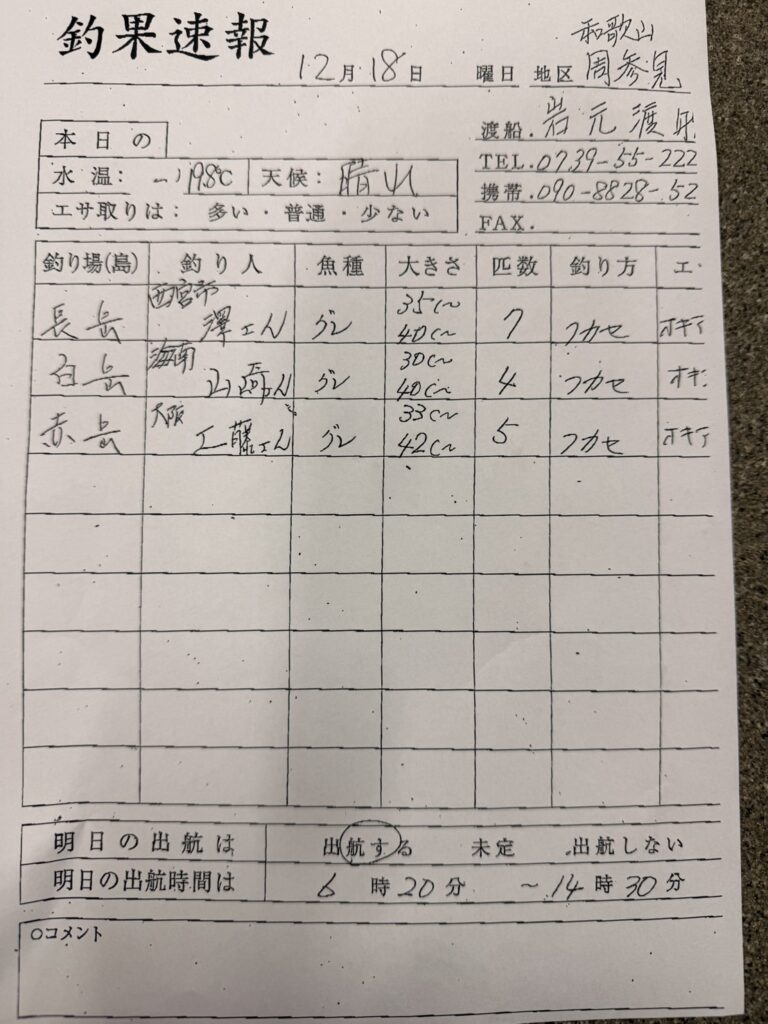 釣果速報
12月18日 曜日 地区 和歌山 周参見
渡船. 岩元渡船
TEL. 0739-55-222
携帯. 090-8828-52
FAX.
本日の
水温: 19.8℃ 天候: 晴れ
エサ取りは: 多い・普通・少ない
釣り場(島) 釣り人 魚種 大きさ 匹数 釣り方 エ
長岳 西宮市 澤さん グレ 35cm 40cm 7 フカセ オキア
白岳 海南 山崎さん グレ 30cm 40cm 4 フカセ オキ
赤岳 大阪 工藤さん グレ 33cm 42cm 5 フカセ オキア
明日の出航は 出航する 未定 出航しない
明日の出航時間は 6時20分 ~14時30分
○コメント